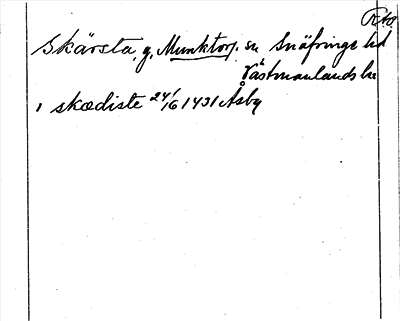 Rkb.
Skärsta, g. Munktorp. sn Snäfringe hd
Västmanlands l.
i skædiste 24/6 1431 Åsby